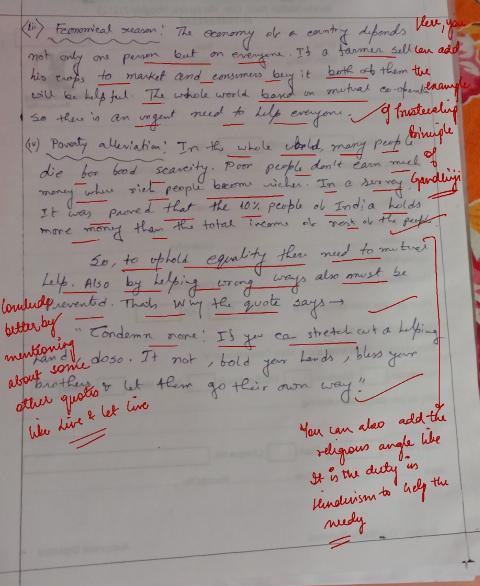 (iii) Economical reason: The economy of a country depends
not only one person but on everyone. If a farmer sell
his crops to market and consumers buy it both of them
will be helpful. The whole world band on mutual co-operation
So there is an urgent need to help everyone.
Here, you
can add
the
example
of trusteeship
Principle
of
Gandhiji
(iv) Poverty alleviation: In the whole world, many people
die for food scarcity. Poor people don't earn much
money where rich people become richer. In a survey
It was proved that the 10% people of India holds
more money than the total income of rest of the people.
So, to uphold equality there need to mutual
help. Also by helping wrong ways also must be
prevented. Thats why the quote says →
"Condemn none: If you can stretch out a helping
hand, doso. It not, bold your hands, bless your
brothers & let them go their own way."
Conclude
better by
mentioning
about some
other quotes
like Live & let live
You can also add the
religious angle like
It is the duty in
Hinduism to help the
needy